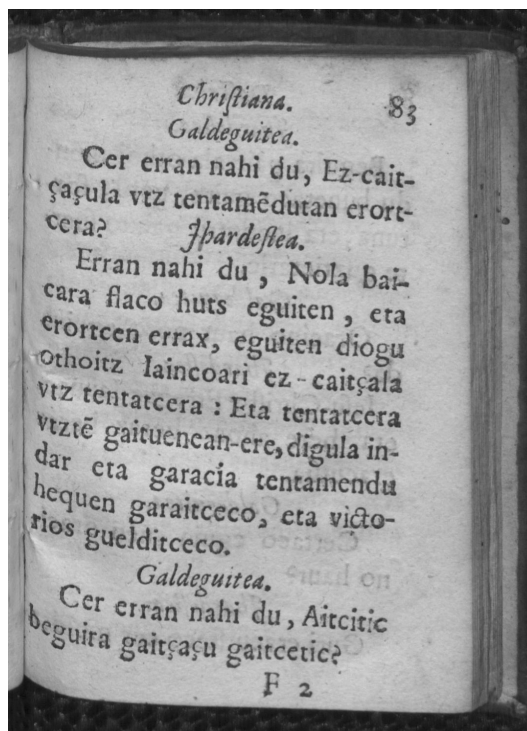 Chriſtiana. 83
Galdeguitea.
Cer erran nahi du, Ez-cait-
çaçula vtz tentamēdutan erort-
cera?
Ihardeſtea.
Erran nahi du, Nola bai-
cara flaco huts eguiten, eta
erortcen errax, eguiten diogu
othoitz Iaincoari ez-caitçala
vtz tentatcera: Eta tentatcera
vtztē gaituenean-ere, digula in-
dar eta garacia tentamendu
hequen garaitceco, eta victo-
rios guelditceco.
Galdeguitea.
Cer erran nahi du, Aitcitic
beguira gaitçaçu gaitcetic?
F 2